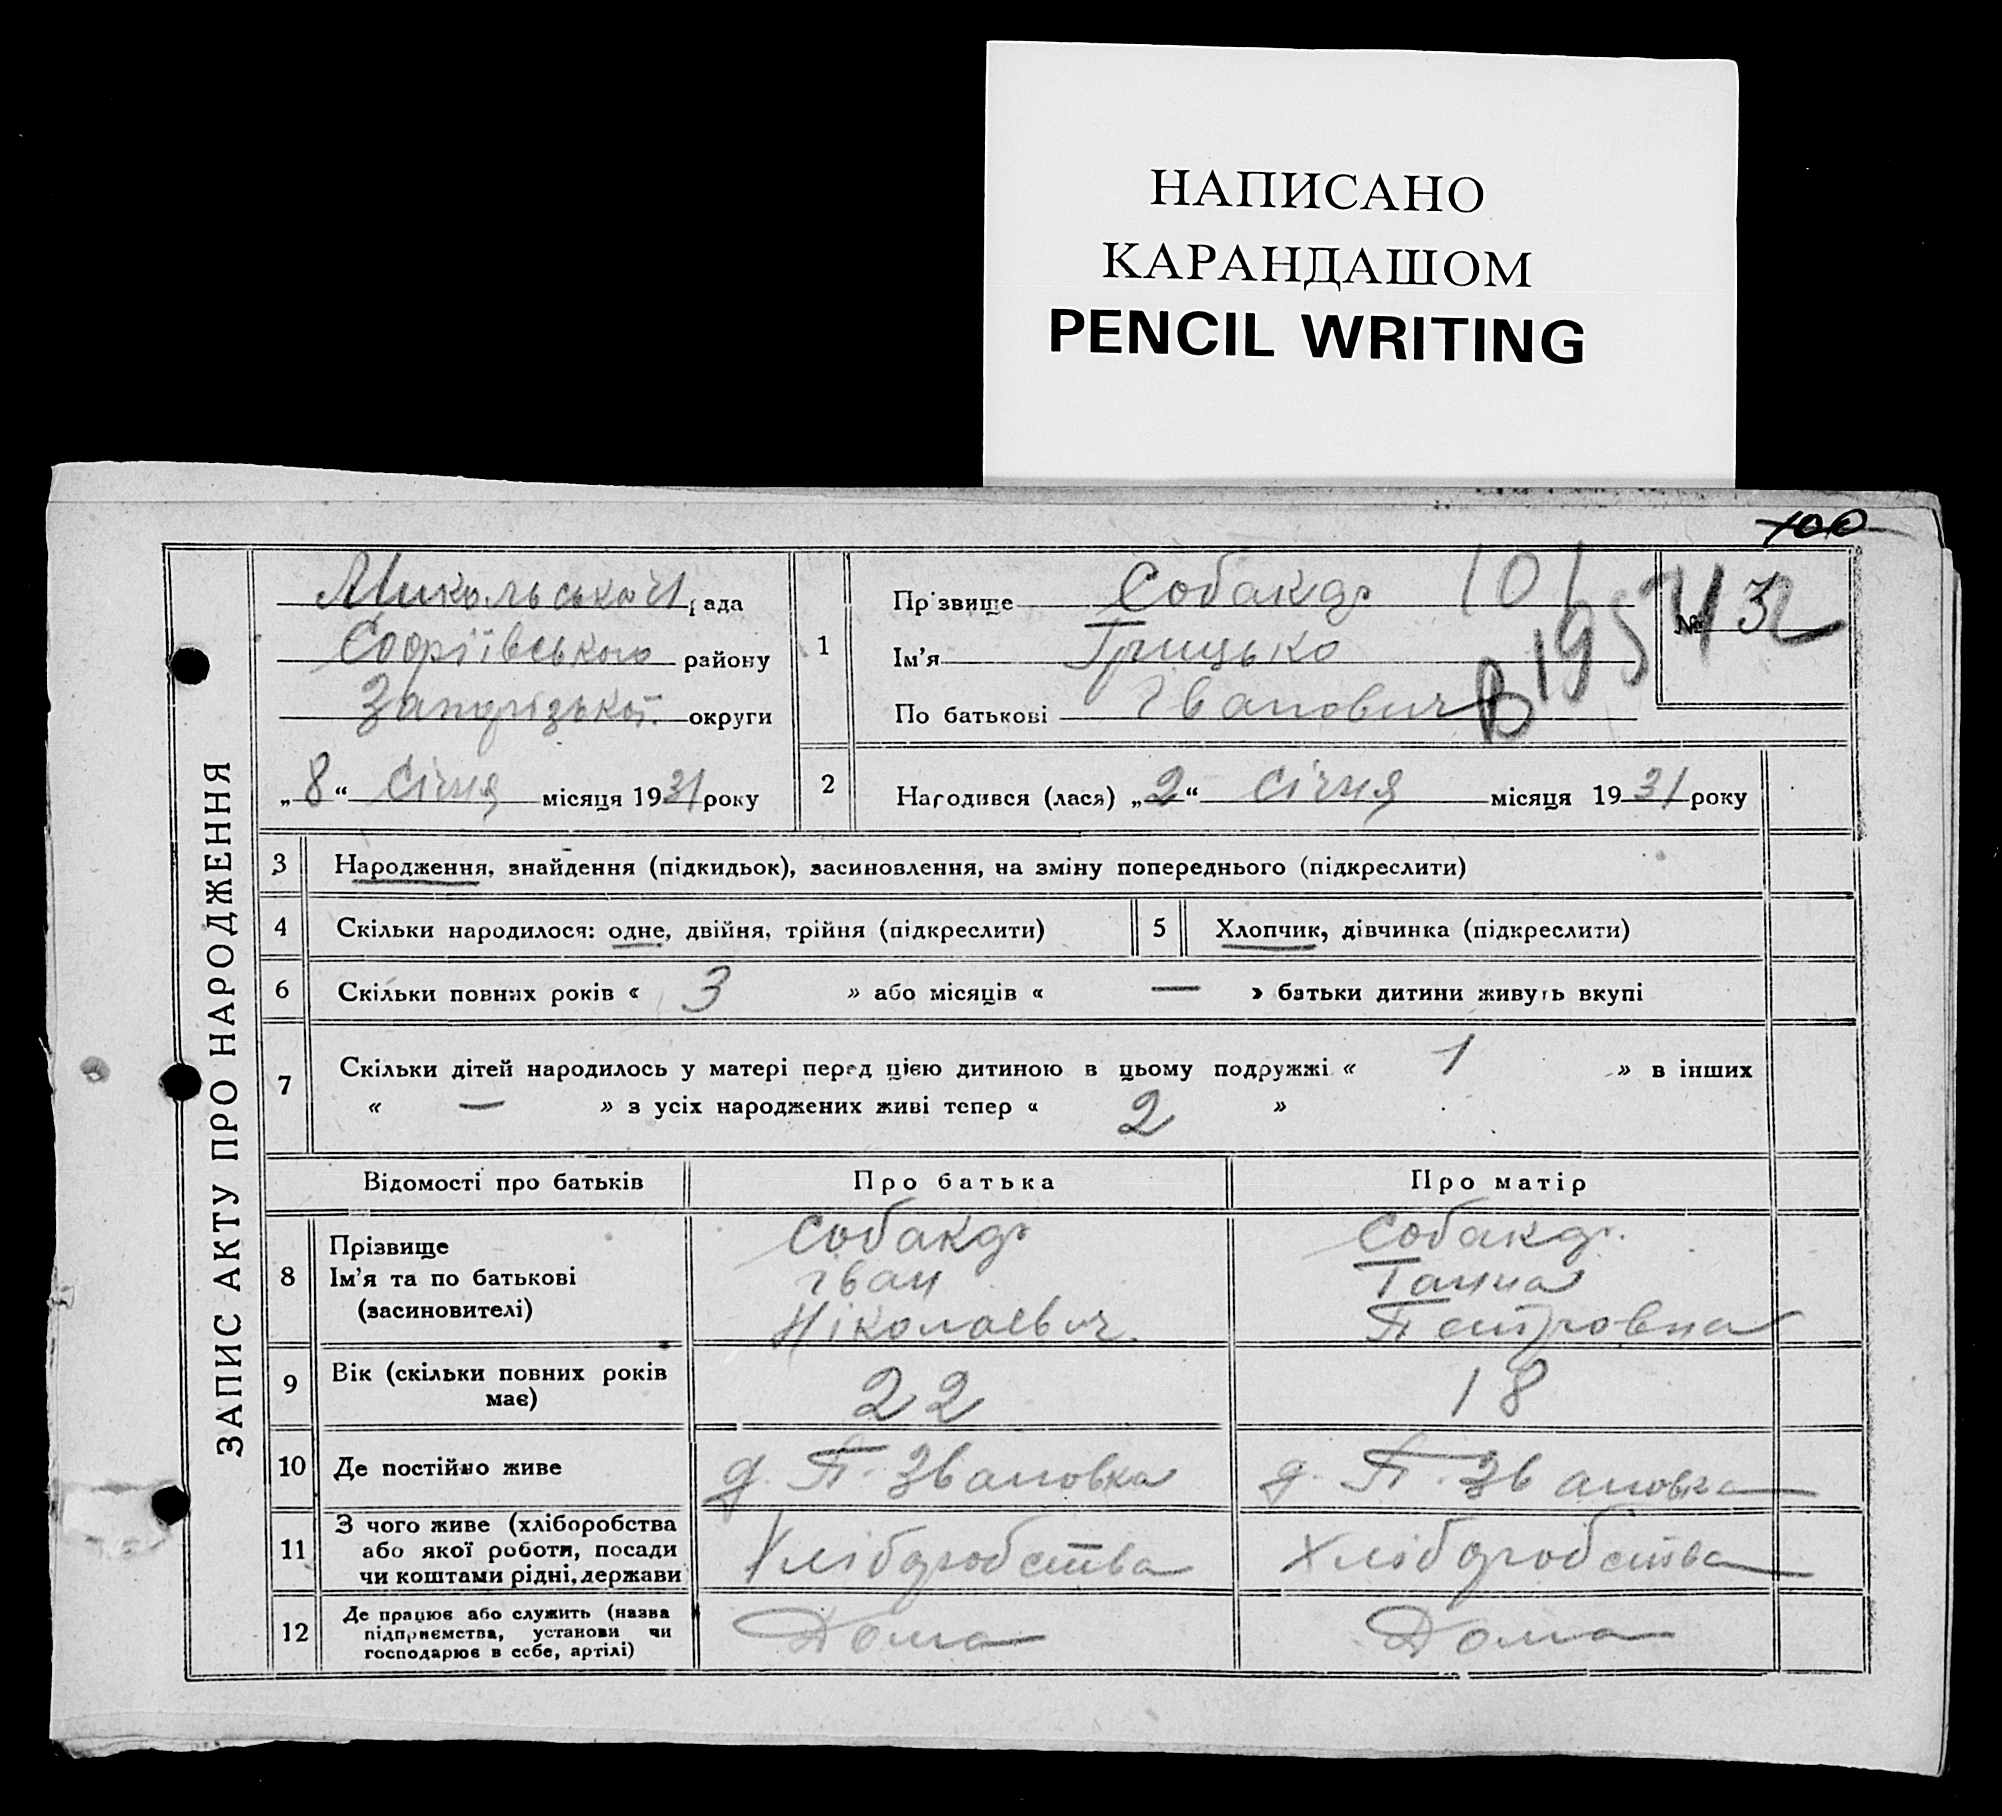 НАПИСАНО
КАРАНДАШОМ
PENCIL WRITING
100
ЗАПИС АКТУ ПРО НАРОДЖЕННЯ
Микольської рада
Софіївського району
Запорізької округи
„8“ Січня місяця 1931 року
1
Прізвище Собакар 101
Ім’я Грицько
По батькові Іванович
№ 3
2 Народився (лася) „2“ січня місяця 1931 року
3 Народження, знайдення (підкидьок), засиновлення, на зміну попереднього (підкреслити)
4 Скільки народилося: одне, двійня, трійня (підкреслити) 5 Хлопчик, дівчинка (підкреслити)
6 Скільки повних років « 3 » або місяців « — » батьки дитини живуть вкупі
7 Скільки дітей народилось у матері перед цією дитиною в цьому подружжі « 1 » в інших
« — » з усіх народжених живі тепер « 2 »
Відомості про батьків Про батька Про матір
8 Прізвище Собакар Собакар
Ім’я та по батькові Іван Ганна
(засиновителі) Ніколаевич Петровна
9 Вік (скільки повних років має) 22 18
10 Де постійно живе д. П. Звановка д. П. Звановка
11 З чого живе (хліборобства
або якої роботи, посади
чи коштами рідні, держави Хліборобства Хліборобства
12 Де працює або служить (назва
підприємства, установи чи
господарює в себе, артілі) Дома Дома